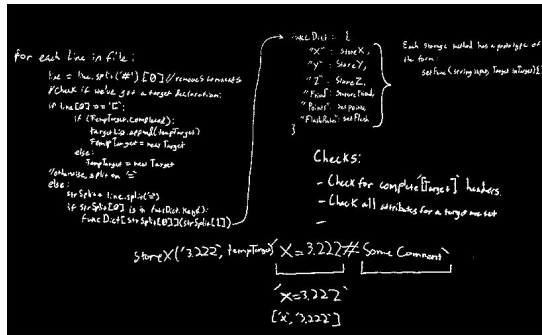 for each line in file:
line = line.split('#')[0] //removes comments
//Check if we've got a target declaration:
if line[0] == '[':
if (tempTarget.Completed):
targetList.append(tempTarget)
tempTarget = new Target
else:
tempTarget = new Target
//otherwise, split on '='
else:
strSplit = line.split('=')
if strSplit[0] is in funcDict.keys():
funcDict[strSplit[0]](strSplit[1])
funcDict: {
"X": storeX,
"Y": storeY,
"Z": storeZ,
"Points": setpoints,
"FlashRate": setFlash
}
Each storage method has a prototype of
the form:
setFunc(string input, Target inTarget){}
Checks:
- Check for complete '[Target]' headers.
- Check all attributes for a target are set
-
storeX('3.222', tempTarget)
'X=3.222# Some Comment'
'X=3.222'
['x', '3.222']